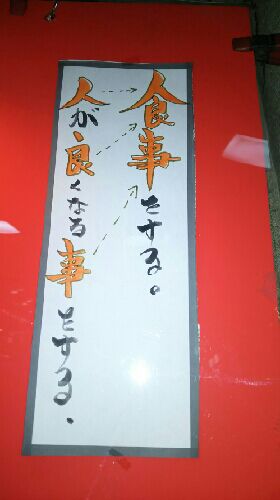 食事とする。
人が良くなる事とする、